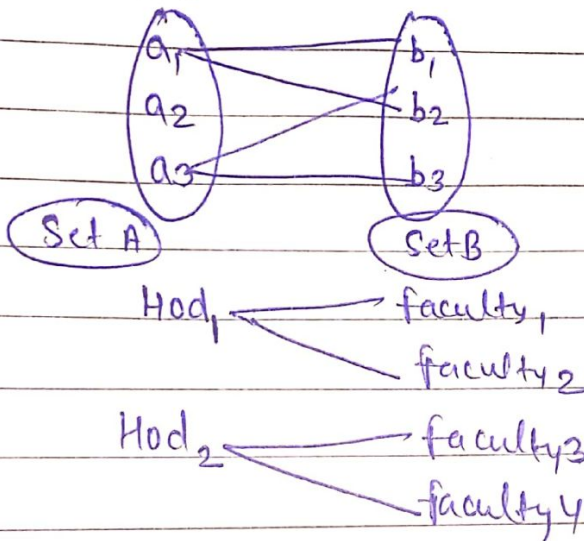 a1 b1
a2 b2
a3 b3
Set A Set B
Hod1 faculty1
faculty2
Hod2 faculty3
faculty4